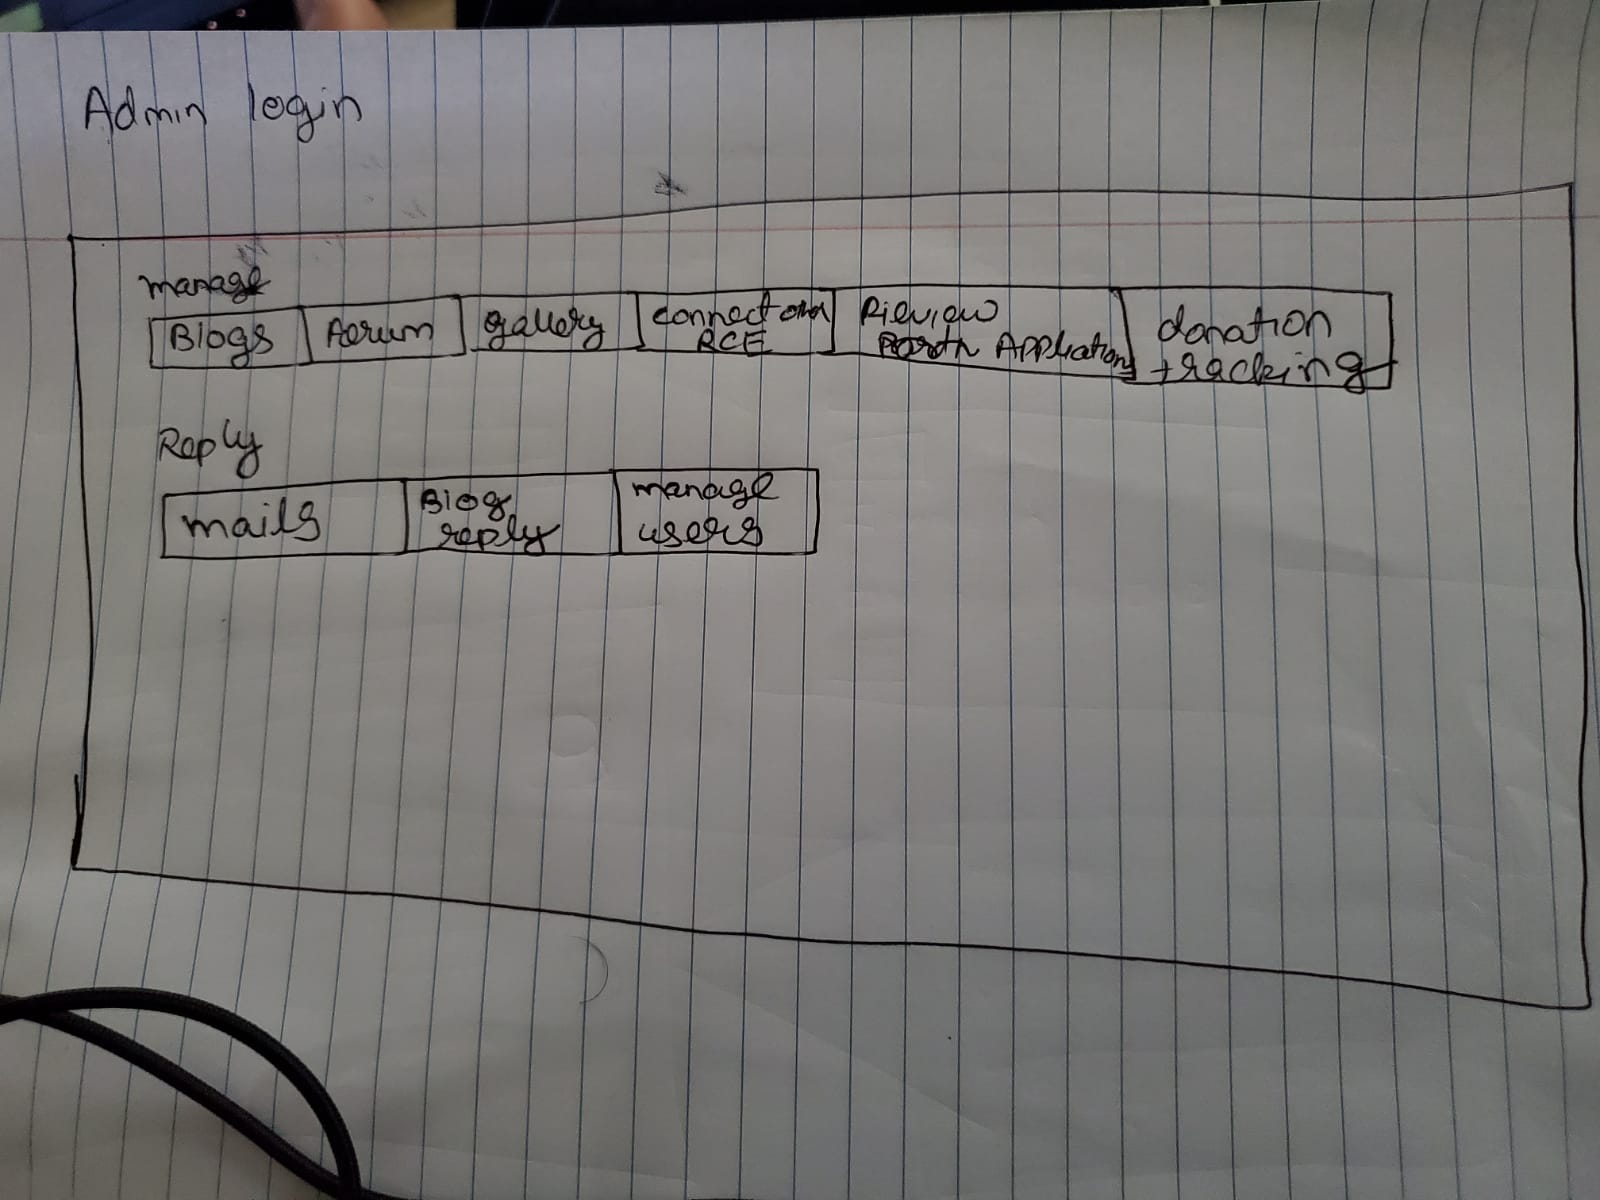 Admin login
manage
Blogs
Forum
gallery
connect
RCE
Review
Application
donation
tracking
Reply
mails
Blog
reply
manage
users